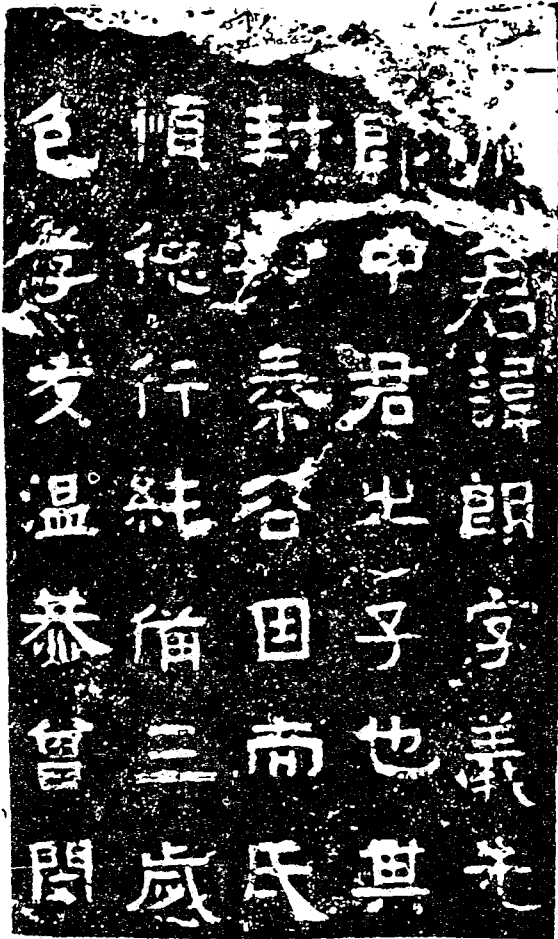 君諱字義先
郎中君之子也其
封秦谷因而氏
順德行純備三歲
色孝友溫恭曾閔